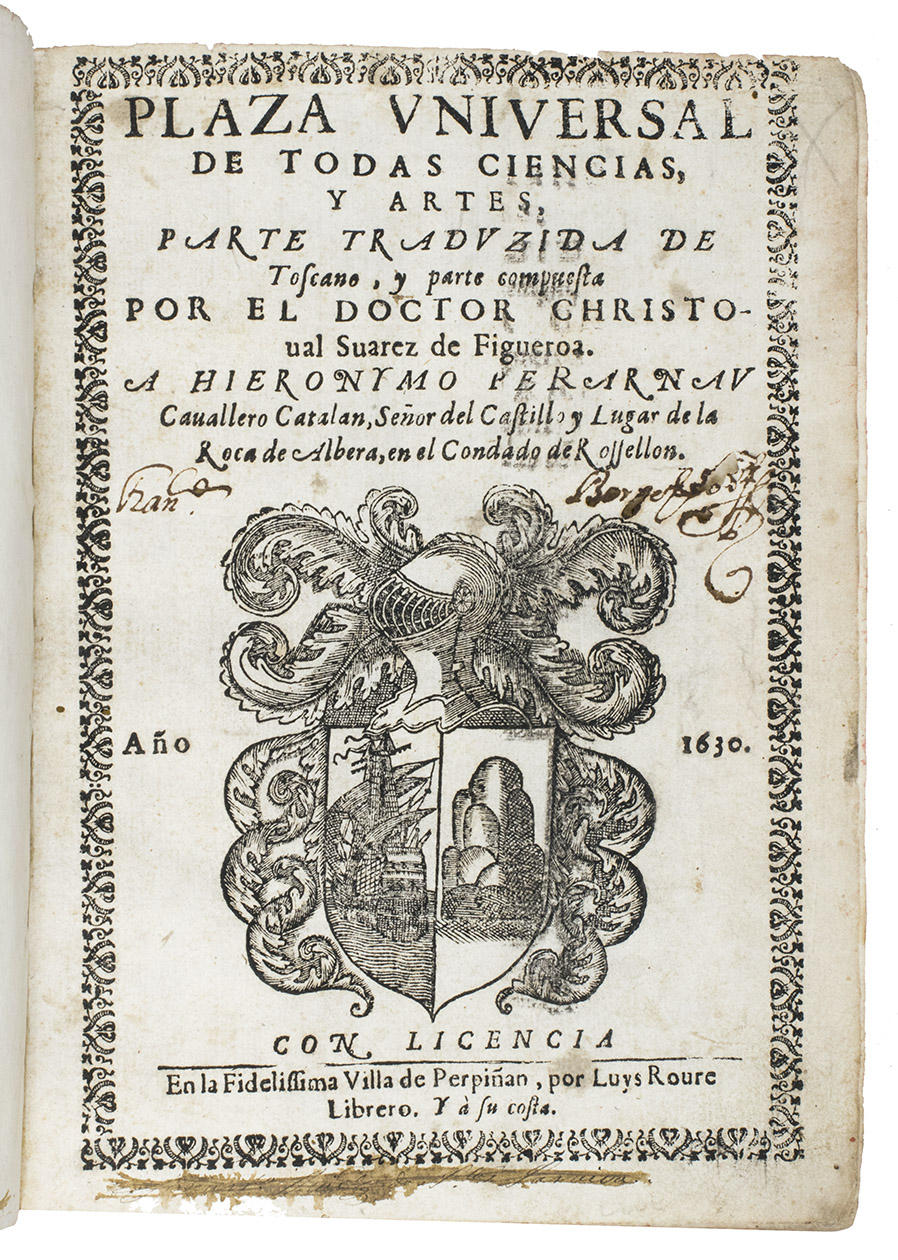 PLAZA VNIVERSAL
DE TODAS CIENCIAS,
Y ARTES,
PARTE TRADVZIDA DE
Toſcano, y parte compueſta
POR EL DOCTOR CHRISTO-
ual Suarez de Figueroa.
A HIERONYMO PERARNAV
Cauallero Catalan, Señor del Caſtillo y Lugar de la
Roca de Albera, en el Condado de Roſſellon.
Año 1630.
CON LICENCIA
En la Fideliſſima Villa de Perpiñan, por Luys Roure
Librero. Y à ſu coſta.